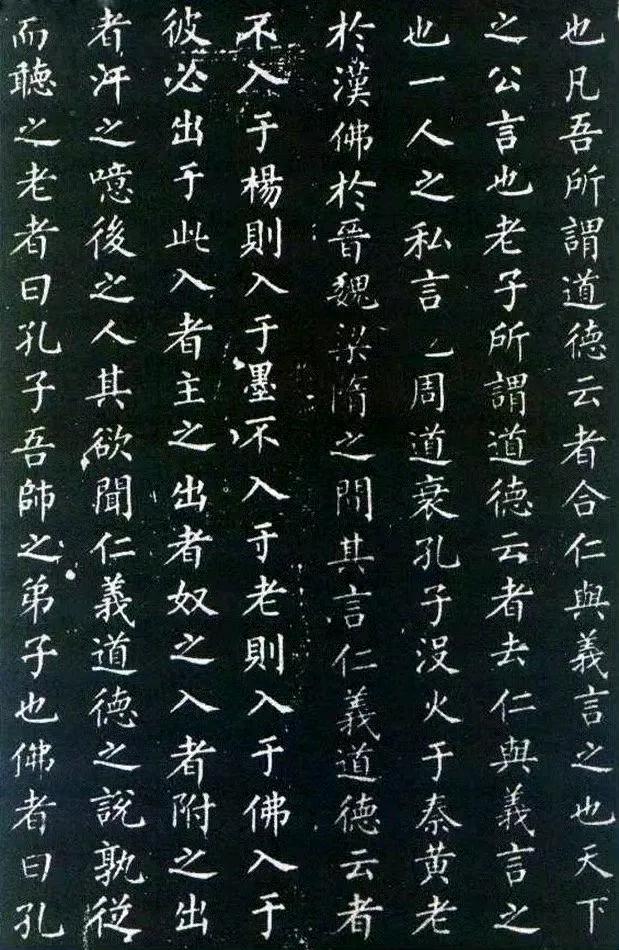 也凡吾所謂道德云者合仁與義言之也天下
之公言也老子所謂道德云者去仁與義言之
也一人之私言㇀周道衰孔子没火于秦黄老
於漢佛於晉魏梁隋之間其言仁義道德云者
不入于楊則入于墨不入于老則入于佛入于
彼必出于此入者主之出者奴之入者附之出
者汙之噫後之人其欲聞仁義道德之說孰從
而聽之老者曰孔子吾師之弟子也佛者曰孔